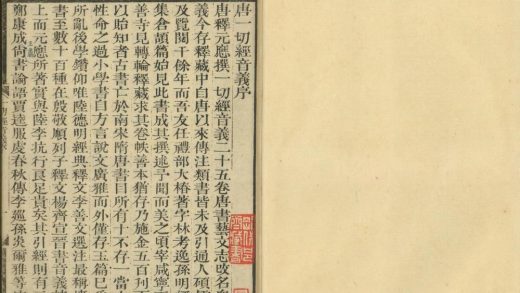 唐一切經音義序
唐釋元應撰一切經音義二十五卷唐書藝文志改名
義今存釋藏中自唐以來傳注類書皆未及引通人碩
及覽閱千餘年而吾友任禮部大椿著字林考逸孫明
集倉頡篇始見此書成其撰述予聞而美之頃宰咸寧
善寺見轉輪釋藏求其卷帙善本猶存乃施金五百刋
以貽知者古書亡於南宋隋唐書目所有十不存一當
性命之過小學書自方言說文廣雅而外僅存玉篇已
所亂後學鑽仰唯陸德明經典釋文李善文選注最稱
書至數十百種在殷敬順列子釋文楊齊宣晉書音義
上而元應所著實與陸李抗行良足貴矣其引經則有
鄭康成尚書論語賈逵服虔春秋傳李巡孫炎爾雅等
一切經音義